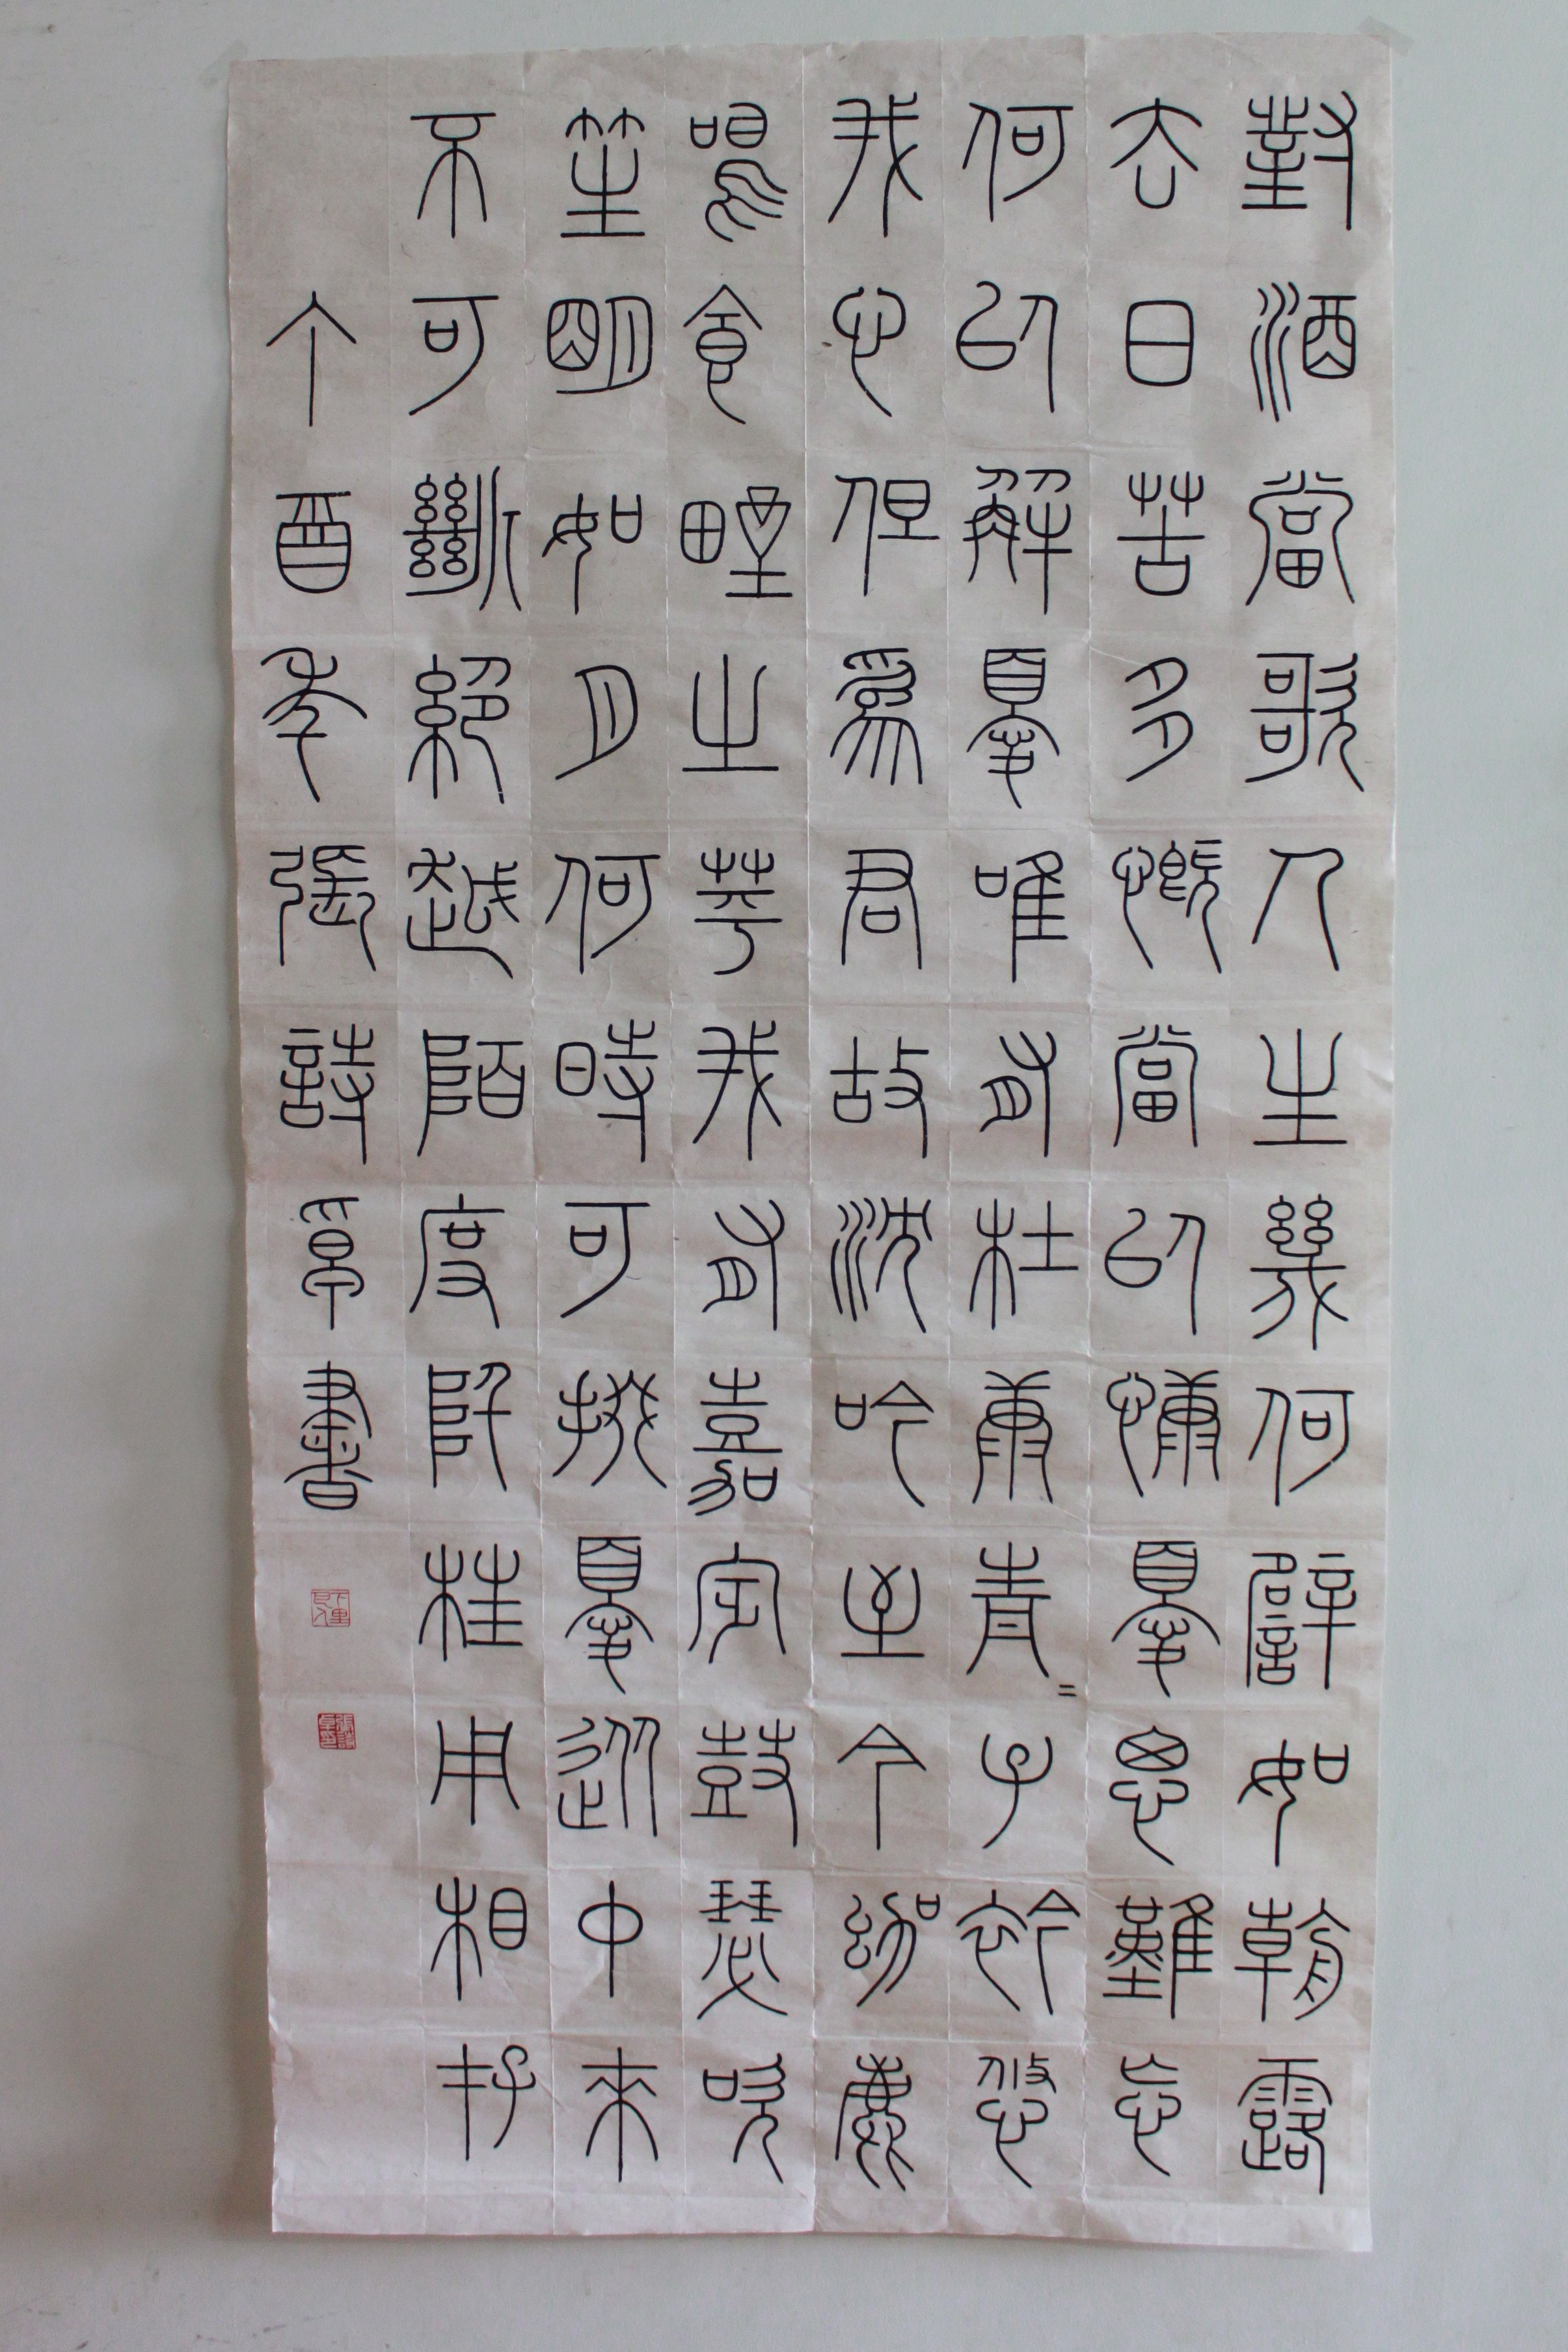 對酒當歌人生幾何譬如朝露
去日苦多慨當以慷憂思難忘
何以解憂唯有杜康青=子衿悠
我心但爲君故沈吟至今呦鹿
鳴食野之苹我有嘉賓鼓瑟吹
笙明如月何時可掇憂從中來
不可斷絕越陌度阡枉用相存
丁酉年張詩卓書